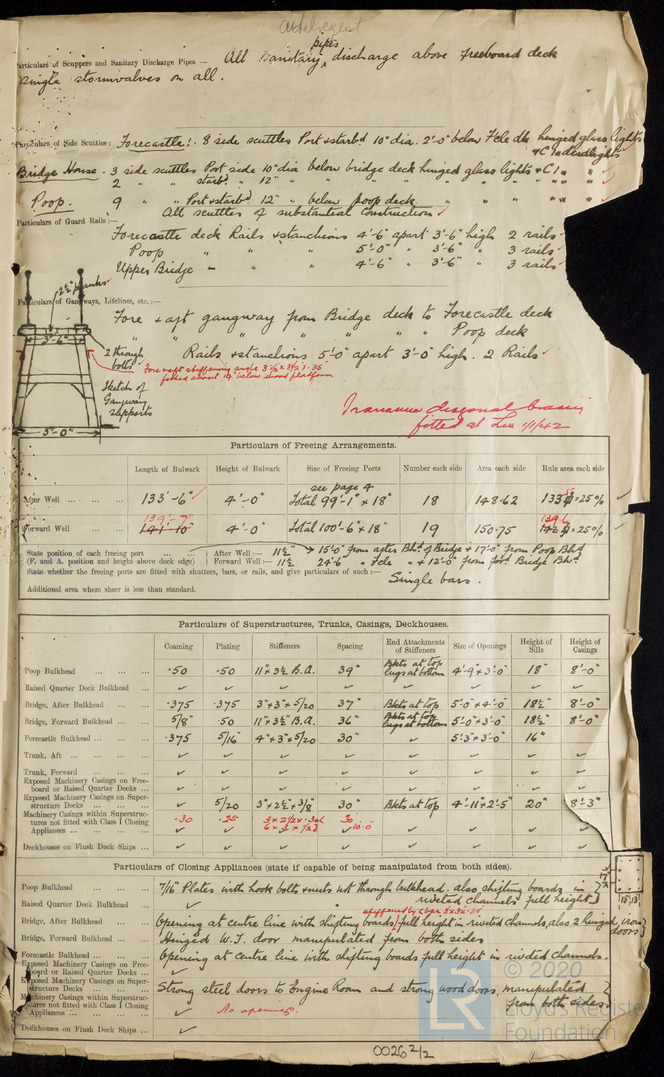 Particulars of Scuppers and Sanitary Discharge Pipes — All sanitary pipes discharge above freeboard deck
single stormvalves on all.
Particulars of Side Scuttles: Forecastle: 8 side scuttles Port & starbd 10" dia. 2'-0" below Fcle dk hinged glass lights
& C I deadlights
Bridge House. 3 side scuttles Port side 10" dia below bridge deck hinged glass lights & C I "
2 " " starbd " 12" " " " " " " " " "
Poop. 9 " " Port & starbd 12" " below poop deck " " " " " "
All scuttles of substantial construction
Particulars of Guard Rails:—
Forecastle deck Rails & stanchions 4'-6" apart 3'-6" high 2 rails
Poop " " " 5'-0" " 3'-6" " 3 rails
Upper Bridge " " " 4'-6" " 3'-6" " 3 rails
2½" planks
Particulars of Gangways, Lifelines, etc.:—
Fore & aft gangway from Bridge deck to Forecastle deck
" " " " " " " Poop deck
Rails & stanchions 5'-0" apart 3'-0" high. 2 Rails
3'-6"
2 through bolts
Fore & aft stiffening angle 3½ x 3½ x .35
fitted about 19" below wood platform
Sketch of Gangway supports
5'-0"
Transverse diagonal bracing
fitted at 1/1/42
Particulars of Freeing Arrangements.
Length of Bulwark Height of Bulwark Size of Freeing Ports Number each side Area each side Rule area each side
see page 4
After Well 133'-6" 4'-0" Total 99'-1" x 18" 18 148.62 133.5 = 25%
139'-7"
Forward Well 141'-10" 4'-0" Total 100'-6" x 18" 19 150.75 139.6 142 = 25%
State position of each freeing port (F. and A. position and height above deck edge)
After Well:— 11½" 15'0" from after Bhd of Bridge & 17'-0" from Poop Bhd
Forward Well:— 11½ 24'6" " Fcle " & 12'-0" from ford Bridge Bhd.
State whether the freeing ports are fitted with shutters, bars, or rails, and give particulars of such:— Single bars.
Additional area where sheer is less than standard.
Particulars of Superstructures, Trunks, Casings, Deckhouses.
Coaming Plating Stiffeners Spacing End Attachments of Stiffeners Size of Openings Height of Sills Height of Casings
Poop Bulkhead .50 .50 11" x 3½ B.A. 39" Bkts at top lugs at bottom 4'-9" x 3'-0" 18" 8'-0"
Raised Quarter Deck Bulkhead ✓ ✓ ✓ ✓ ✓ ✓ ✓ ✓
Bridge, After Bulkhead .375 .375 3" x 3" x 5/20 37" Bkts at top 5'-0" x 4'-0" 18½" 8'-0"
Bridge, Forward Bulkhead 5/8" .50 11" x 3½" B.A. 36" Bkts at top lugs at bottom 5'-0" x 3'-0" 18½" 8'-0"
Forecastle Bulkhead .375 5/16" 4" x 3" x 5/20 30" ✓ 5'-3" x 3'-0" 16"
Trunk, Aft ✓ ✓ ✓ ✓ ✓ ✓ ✓ ✓
Trunk, Forward ✓ ✓ ✓ ✓ ✓ ✓ ✓ ✓
Exposed Machinery Casings on Freeboard or Raised Quarter Decks ✓ ✓ ✓ ✓ ✓ ✓ ✓ ✓
Exposed Machinery Casings on Superstructure Decks ✓ 5/20 3" x 2½" x 3/8" 30" Bkts at top 4'-11" x 2'-5" 20" 8'-3"
Machinery Casings within Superstructures not fitted with Class I Closing Appliances .30 .25 3 x 2½ x .30 30
✓ ✓ 6 x 3 x ½ 10'0" ✓ ✓ ✓ ✓
Deckhouses on Flush Deck Ships ✓ ✓ ✓ ✓ ✓ ✓ ✓ ✓
Particulars of Closing Appliances (state if capable of being manipulated from both sides).
Poop Bulkhead 7/16" Plates with hook bolts & nuts not through bulkhead. also shifting boards in
riveted channels full height
Raised Quarter Deck Bulkhead ✓
stiffened by c bar 3x3x.35
Bridge, After Bulkhead Opening at centre line with shifting boards full height in riveted channels, also 2 hinged iron doors
Bridge, Forward Bulkhead Hinged W.T. door manipulated from both sides
Forecastle Bulkhead Opening at centre line with shifting boards full height in riveted channels.
Exposed Machinery Casings on Freeboard or Raised Quarter Decks ✓
Exposed Machinery Casings on Superstructure Decks Strong steel doors to Engine Room and strong wood doors, manipulated
from both sides.
Machinery Casings within Superstructures not fitted with Class I Closing Appliances ✓ No openings.
Deckhouses on Flush Deck Ships ✓
© 2020
LR
Lloyd's Register
Foundation
0026 2/2